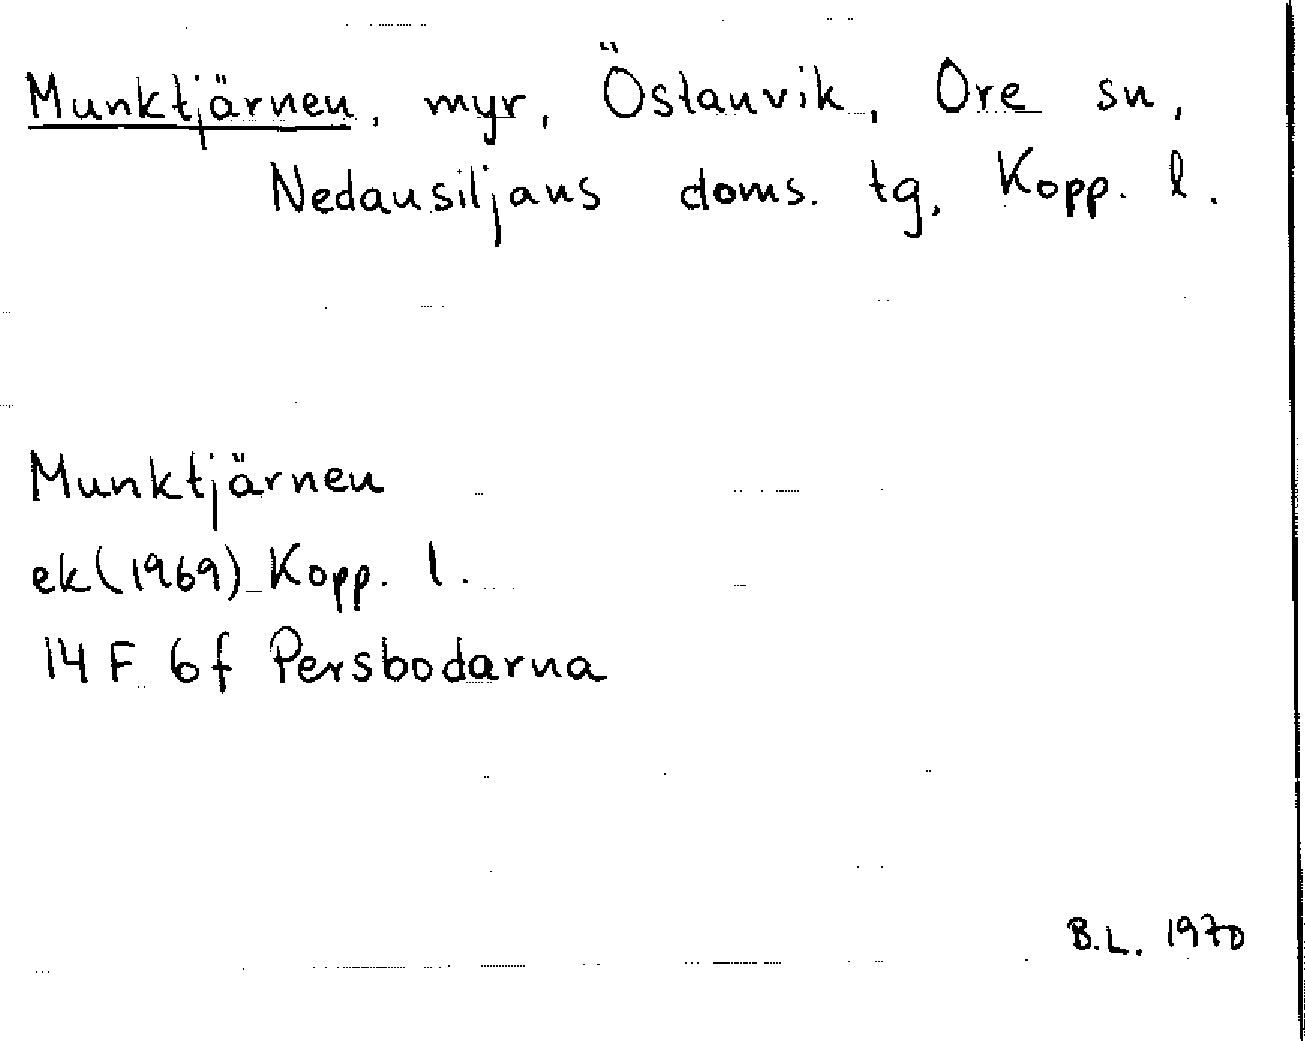 Munktjärnen, myr, Östanvik, Ore sn,
Nedansiljans doms. tg, Kopp. l.
Munktjärnen
ek (1969) Kopp. l.
14 F 6f Persbodarna
B.L. 1970